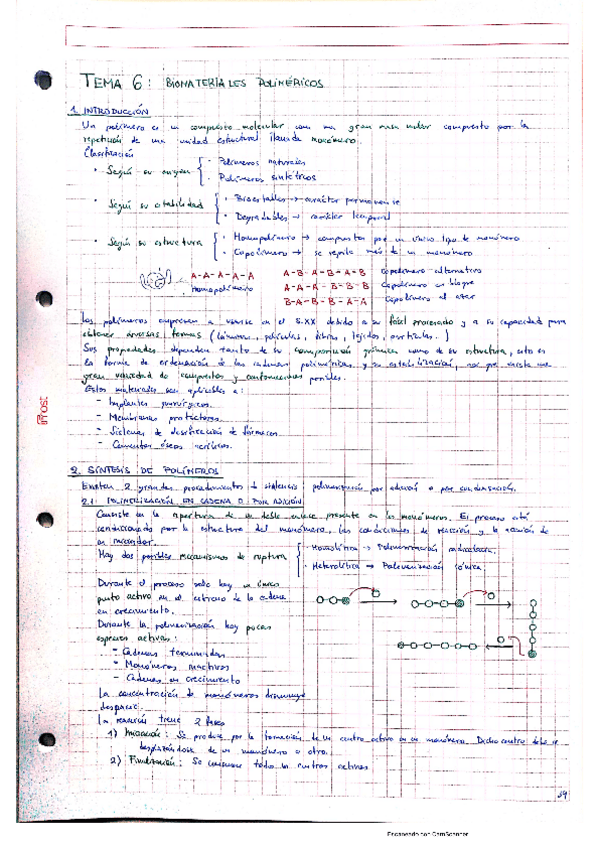 TEMA 6: BIOMATERIALES POLIMÉRICOS
1. INTRODUCCIÓN
Un polímero es un compuesto molecular con una gran masa molar compuesto por la
repetición de una unidad estructural llamada monómero.
Clasificación
• Según su origen
• Polímeros naturales
• Polímeros sintéticos
• Según su estabilidad
• Bioestables → carácter permanente
• Degradables → carácter temporal
• Según su estructura
• Homopolímero → compuestos por un único tipo de monómero
• Copolímero → se repite más de un monómero
A-A-A-A-A
Homopolímero
A-B-A-B-A-B Copolímero alternativo
A-A-A-B-B-B Copolímero en bloque
B-A-B-B-A-A Copolímero al azar
Los polímeros empiezan a usarse en el S.XX debido a su fácil procesado y a su capacidad para
obtener diversas formas (láminas, películas, fibras, tejidos, partículas...)
Sus propiedades dependen tanto de su composición química como de su estructura, esto es
la forma de ordenación de las cadenas poliméricas, y su por existe una
gran variedad de compuestos y posibles.
Estos materiales son aplicables a:
- Implantes quirúrgicos.
- Membranas protectoras.
- Sistemas de dosificación de fármacos.
- Cementos óseos acrílicos.
2. SÍNTESIS DE POLÍMEROS
Existen 2 grandes procedimientos de síntesis: polimerización por adición o por condensación.
2.1. POLIMERIZACIÓN EN CADENA O POR ADICIÓN
Consiste en la apertura de un doble enlace presente en los monómeros. El proceso está
condicionado por la estructura del monómero, las condiciones de reacción y la acción de
un iniciador.
Hay dos posibles mecanismos de ruptura
• Homolítica → Polimerización radicalaria.
• Heterolítica → Polimerización iónica.
Durante el proceso solo hay un único
punto activo en el extremo de la cadena
en crecimiento.
Durante la polimerización hay pocas
especies activas:
- Cadenas terminadas
- Monómeros reactivos
- Cadenas en crecimiento
La concentración de monómeros disminuye
despacio.
La reacción tiene 2 fases
1) Iniciación: Se produce por la formación de un centro activo en un monómero. Dicho centro debe ir
desplazándose de un monómero a otro.
2) Finalización: Se consumen todos los centros activos
39
Escaneado con CamScanner